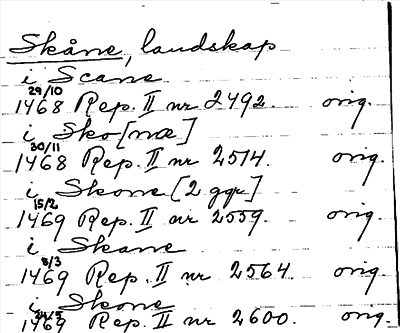 Skåne, landskap
i Scane
29/10
1468 Rep. II nr 2492. orig.
i Sko[næ]
30/11
1468 Rep. II nr 2514. orig.
i Skone [2 ggr]
15/2
1469 Rep. II nr 2559. orig.
i Skane
8/3
1469 Rep. II nr 2564. orig.
i Skone
1469 Rep. II nr 2600. orig.